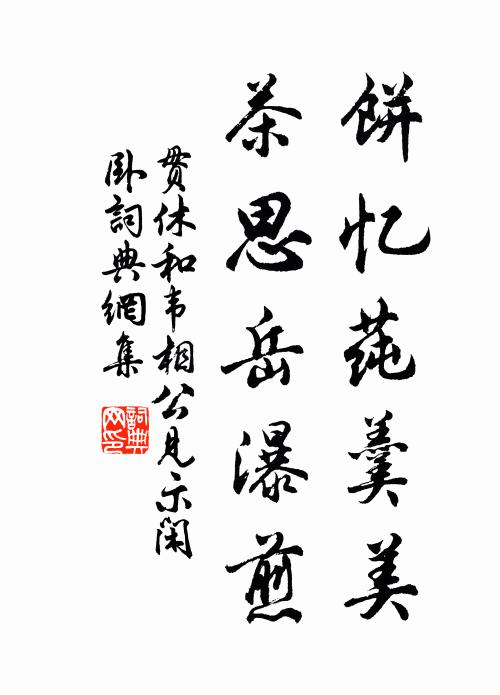 餅忆莼羹美
茶思岳瀑煎
贯休和韦相公见示闲
卧詞典網集
詞典
网印